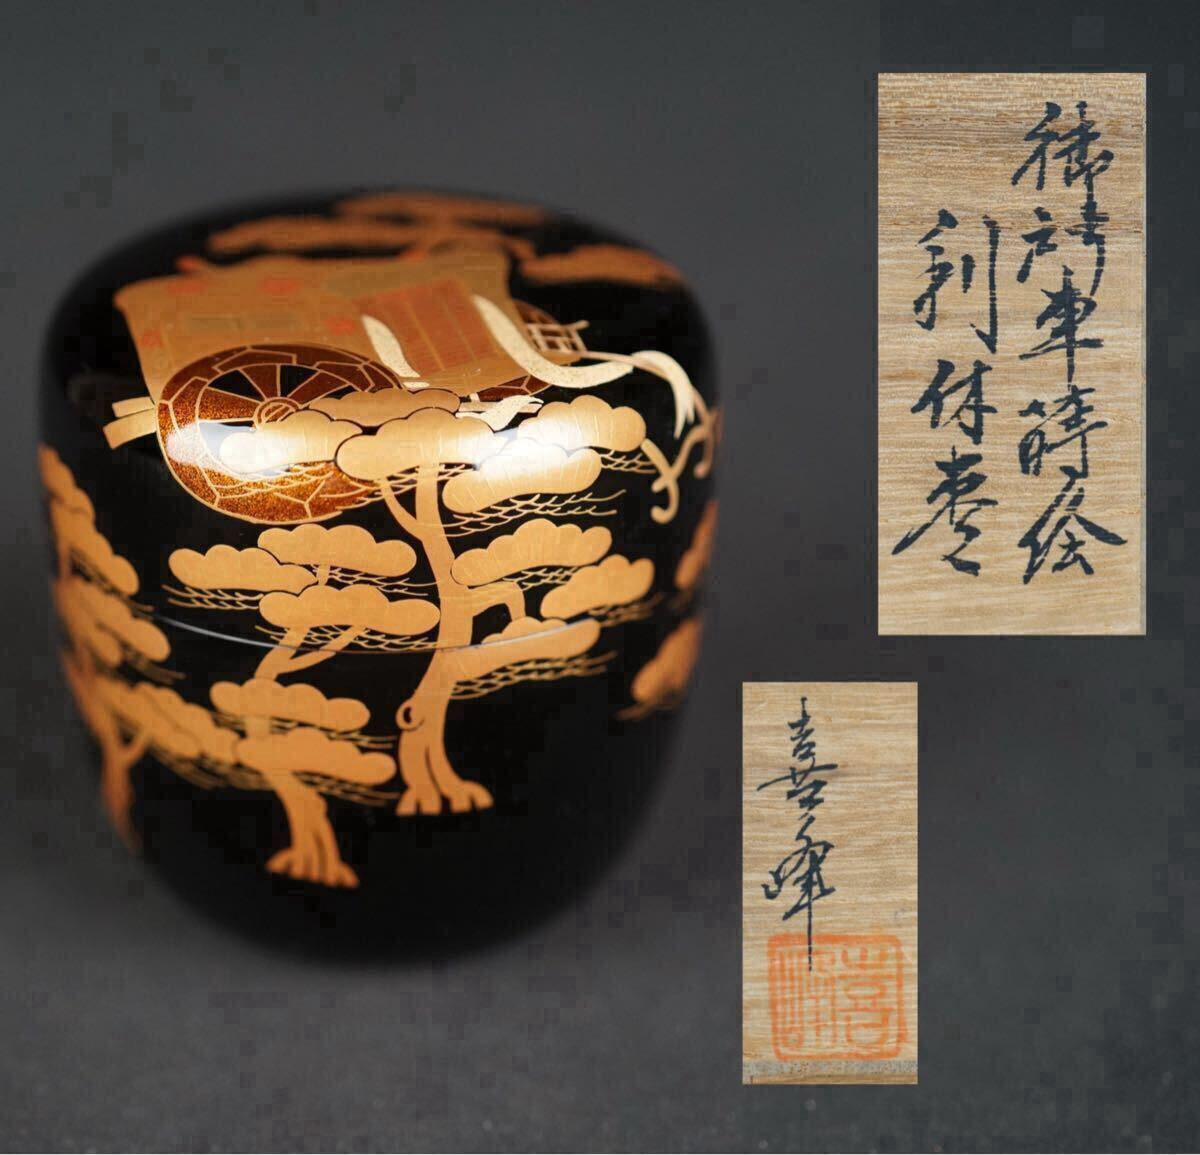 御所車蒔絵
利休棗
喜峰